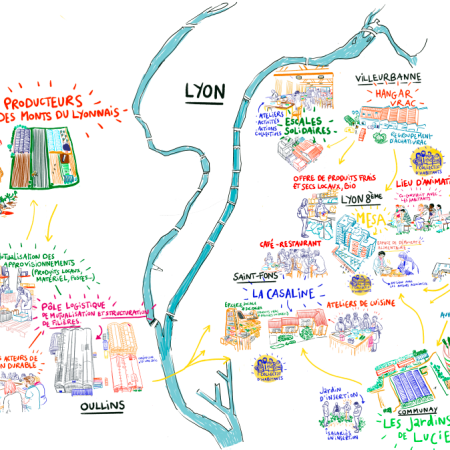 PRODUCTEURS
DES MONTS DU LYONNAIS
LYON
VILLEURBANNE
HANGAR
VRAC
ATELIERS
ACTIVITÉS
ACTIONS
COLLECTIVES
ESCALES
SOLIDAIRES
GROUPEMENT
D'ACHAT VRAC
OFFRE DE PRODUITS FRAIS
ET SECS LOCAUX, BIO
COLLECTIF
D'HABITANTS
LIEU D'ANIMATI
LYON 8ÈME
MESA
CAFÉ-RESTAURANT
SAINT-FONS
LA CASALINE
ATELIERS DE CUISINE
COLLECTIF
D'HABITANTS
MUTUALISATION DES
APPROVISIONNEMENTS
(PRODUITS LOCAUX,
MATÉRIEL, FLUXES...)
PÔLE LOGISTIQUE
DE MUTUALISATION ET STRUCTURATION
DE FILIÈRES
ACTEURS DE
ON DURABLE
OULLINS
JARDIN
D'INSERTION
SALARIÉS
EN INSERTION
COMMUNAY
LES JARDINS
DE LUCIE